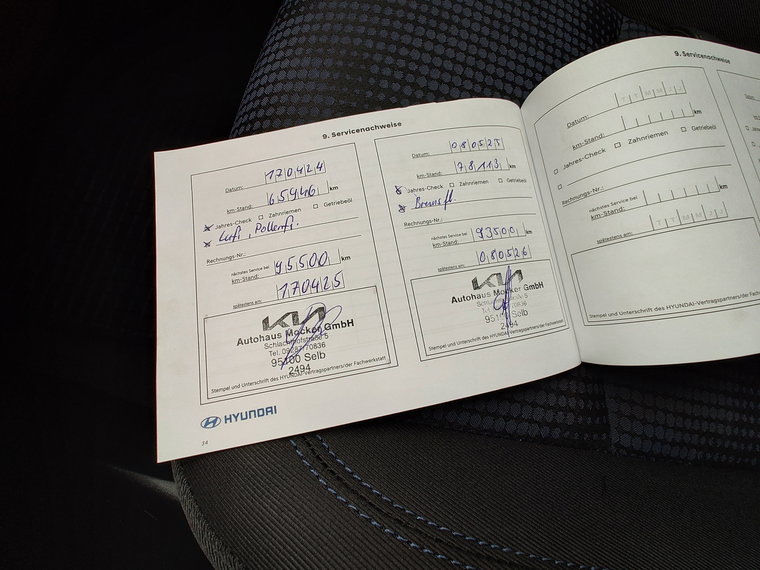 9. Servicenachweise
Datum: 170424
km-Stand: 65946 km
Jahres-Check Zahnriemen Getriebeöl
Lufi, Pollenfi.
Rechnungs-Nr.:
nächstes Service bei km-Stand: 95500 km
spätestens am: 170425
KIA
Autohaus Mocker GmbH
Schlachthofstraße 5
Tel. 09287/70836
95100 Selb
2494
Stempel und Unterschrift des HYUNDAI-Vertragspartners/der Fachwerkstatt
HYUNDAI
34
Datum: 080525
km-Stand: 78113 km
Jahres-Check Zahnriemen Getriebeöl
Bremsfl.
Rechnungs-Nr.:
nächstes Service bei km-Stand: 93500 km
spätestens am: 080526
KIA
Autohaus Mocker GmbH
95100 Selb
2494
Stempel und Unterschrift des HYUNDAI-Vertragspartners/der Fachwerkstatt
9. Servicenachweise
Datum: T T M M J J
km-Stand: km
Jahres-Check Zahnriemen Getriebeöl
Rechnungs-Nr.:
nächstes Service bei km-Stand: km
spätestens am: T T M M J J
Stempel und Unterschrift des HYUNDAI-Vertragspartners/der